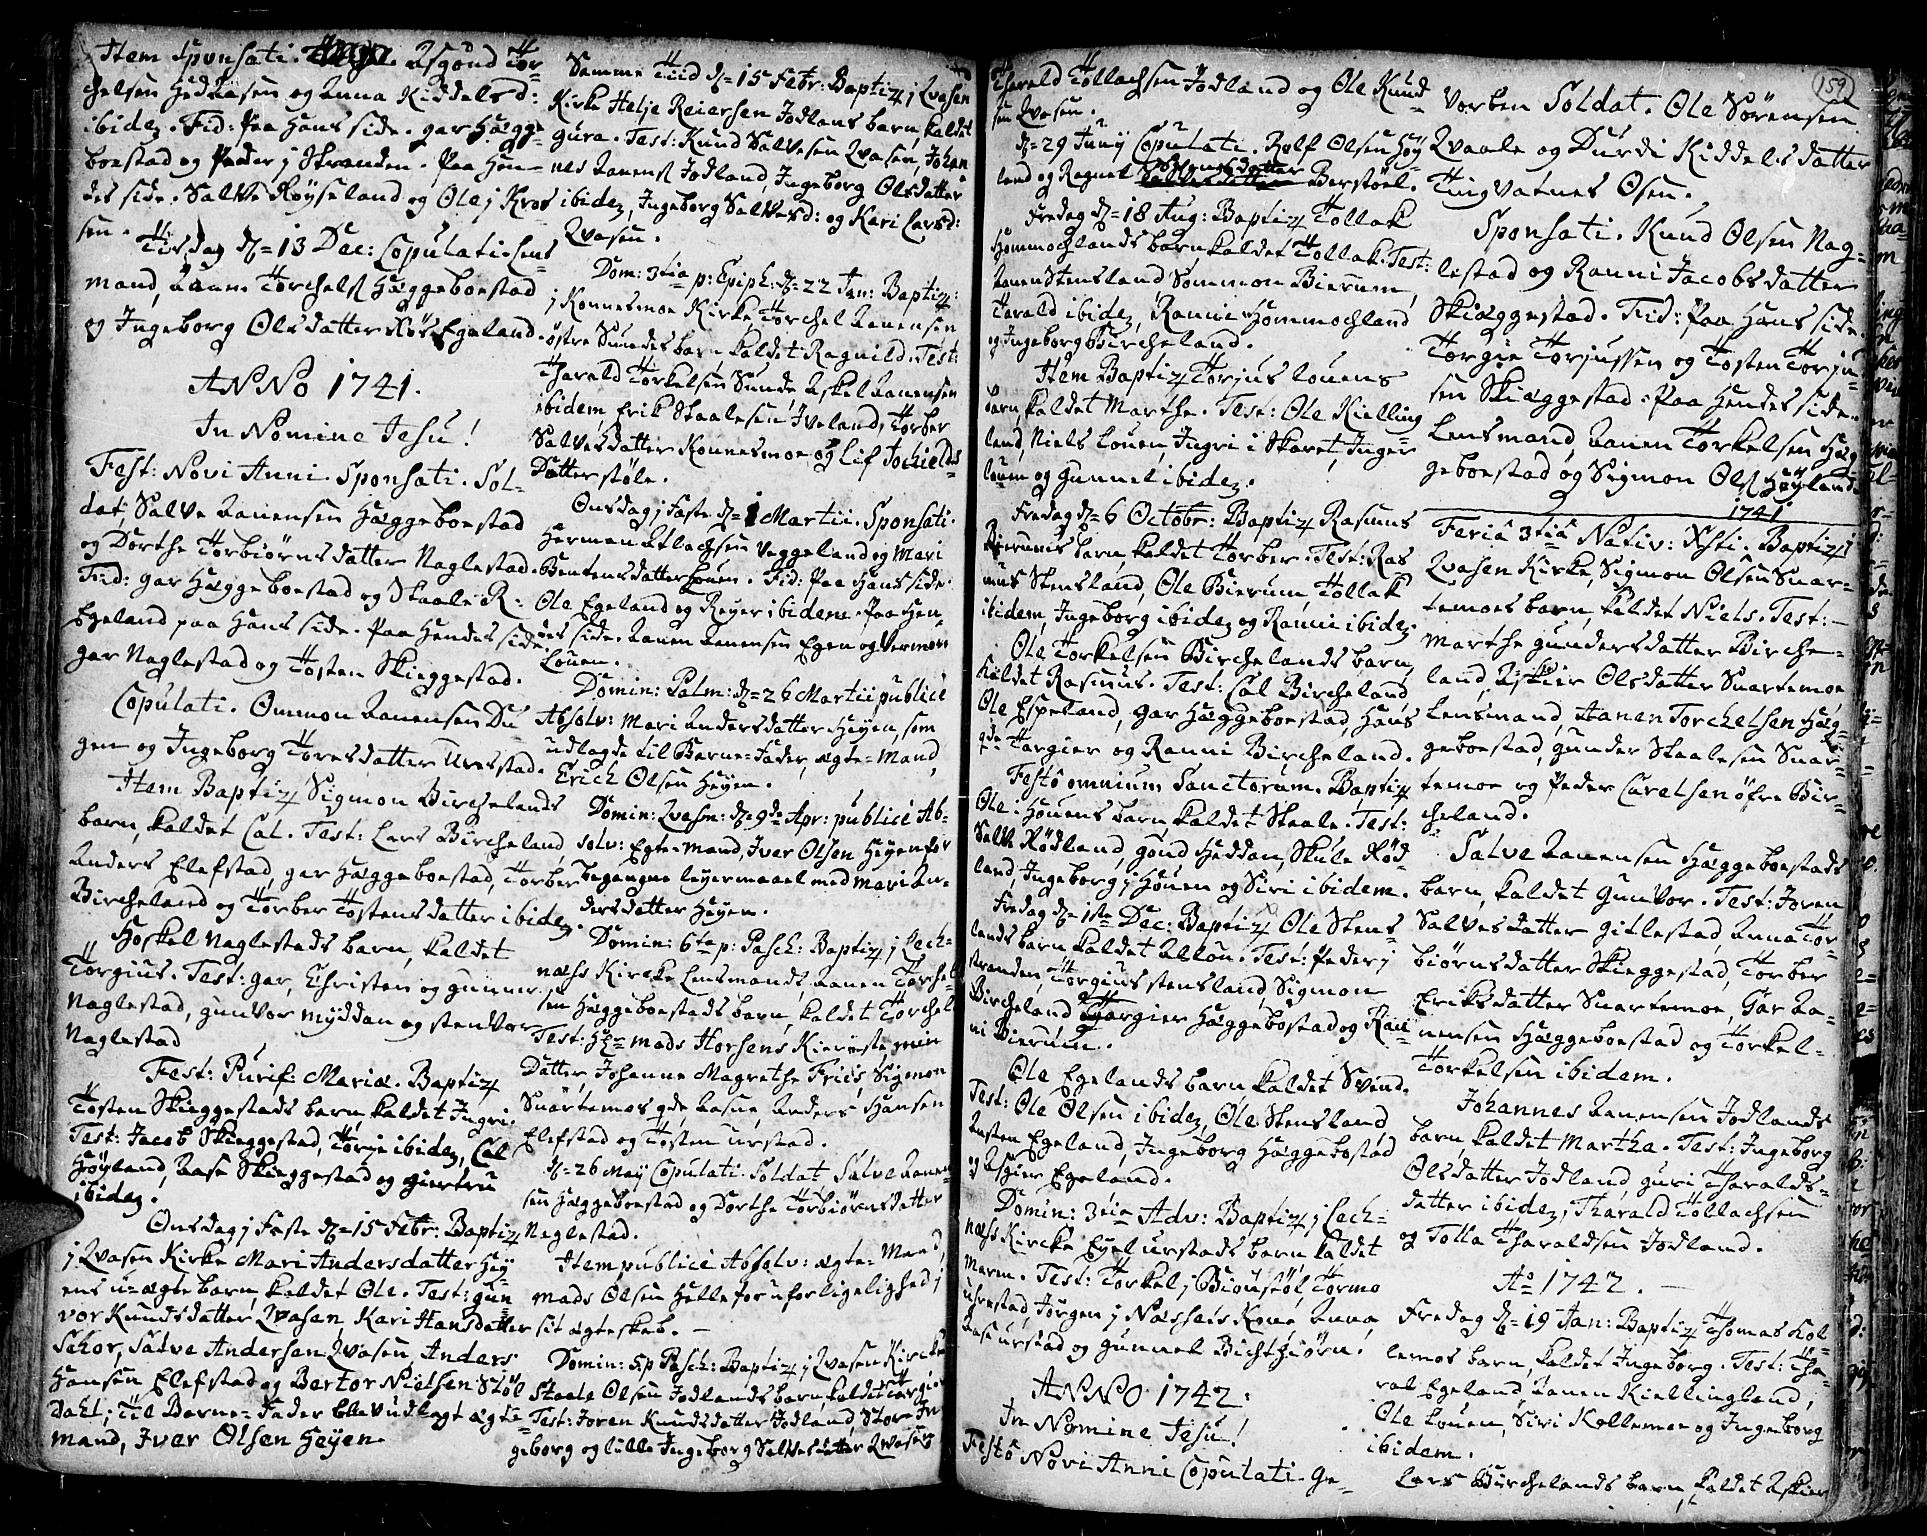 Item Sponsati. Asgoud Tor-
chelsen Heddesen og Anna Kiddelsd:
ibidez. Fid: paa Hans side. gar Hægge-
boestad og Peder j Stranden. paa Hen-
des side. Salve Røyseland og Ole j Kros
sen.
Tirsdag d. 13 Dec: Copulati. Lens
mand, Aanen Torchels Hæggeboestad
og Ingeborg Olsdatter Egeland.
ANNO 1741.
In Nomine Jesu!
Fest: Novi Anni. Sponsati. Sol-
dat, Salve Aanensen Hæggeboestad
og Dorthe Torbiørnsdatter Naglestad.
Fid: gar Hæggeboestad og Staale R:
Egeland paa Hans side. Paa Hendes side,
gar Naglestad og Tosten Skieggestad.
Copulati. Ommon Aanensen Du
gen og Ingeborg Toresdatter Urestad.
Item Baptiz Sigmon Birchelands
barn, kaldet Cal. Test: Lars Bircheland
Anders Elefstad, gar Hæggeboestad, Torber
Bircheland og Torber Tostensdatter ibidez.
Hoskel Naglestads barn, kaldet
Torgius. Test: gar, Christen og gunner
Naglestad, gunvor Myddan og Stenvor
Naglestad
Fest: Purif: Mariæ. Baptiz
Tosten Skieggestads barn, kaldet Ingri.
Test: Jacob Skieggestad, Torje ibidez, Cal
Høyland, Aase Skieggestad og giertru
ibidez.
Onsdag j Faste d. 15 Febr: Baptiz
j Qvasen Kirke Mari Andersdatter Hey
ens u-ægte barn, kaldet Ole. Test: gun
vor Knudsdatter Qvasen Kari Hansdatter
Skor, Salve Andersen Qvasen, Anders
Hansen Elefstad og Bertor Nielsen Støl
dahl; Til Barne-Fader blev udlagt ægte
mand, Iver Olsen Heyen.
Samme Tiid d. 15 Febr: Baptiz j Qvasen
Kirke Helje Reiersen Jodlans barn, kaldet
gura. Test: Knud Salvesen Qvasen, Johan
nes Aanens Jodland, Ingeborg Olsdatter
ibidez, Ingeborg Salvesd: og Kari Larsd:
Qvasen.
Dom: 3tia p: Epiph: d. 22 Jan: Baptiz:
j Konnesmoe Kirke Torchel Aanensen
østre Sundes barn kaldet Ragnild. Test:
Tharald Torkelsen Sunde Askel Aanensen
ibidem, Erik Staalesen Iveland, Torber
Salvesdatter Konnesmoe og Lif
Datterstøle.
Onsdag j Faste d. 1 Martii. Sponsati.
Herman Atlachsen Veggeland og Mari
Bentensdatter Louen. Fid: paa Hans side.
Ole Egeland og Reyer ibidem. Paa Hen-
des side. Aanen Aanensen Egen og Vermon
Louen.
Domin: Palm: d. 26 Martii publicè
Absolv: Mari Andersdatter Heyen, som
udlagde til Barne-Fader, ægte-Mand,
Erich Olsen Heyen.
Domin: Qvasm: d. 9de Apr: publicè Ab-
solv: Egte-mand, Iver Olsen Heyen for
begangne leyermaael med Mari An-
dersdatter Heyen.
Domin: 6ta p: Pasch: Baptiz j Lech-
næss Kircke Lensmands Aanen Torchel
sen Hæggeboestads barn, kaldet Torchel
Test: Hr mads Horsens Kieriste, min
Datter Johanne Magrethe Friis, Sigmon
Snartemos qde Aasne, Anders Hansen
Elefstad og Tosten Urstad.
d. 26 Maij Copulati. Soldat Salve Aanen
sen Hæggeboestad og Dorthe Torbiørnsdatter
Naglestad.
Item publicè Absolv: ægte-Mand,
mads Olsen Helle for uforligelighed j
sit ægteskab.
Domin: 5. p Pasch: Baptiz j Qvasen Kircke
Staale Olsen Jodlands barn, kaldet Torgier
Test: Joren Knudsdatter Jodland, Store In
geborg og lille Ingeborg Salvesdatter Qvasen
Tharald Tollachsen Jodland og Ole Knud
sen Qvasen.
d. 29 Junij Copulati. Rolf Olsen Høy
land og Ragnel Berstøel.
Fredag d. 18 Aug: Baptiz Tollak
Hommochlands barn kaldet Tollak. Test:
Aanen Stensland Sommon Bierum,
Tarald ibidez, Ranni Hommochland
og Ingeborg Bircheland.
Item Baptiz Torjus Louens
barn kaldet Marthe. Test: Ole Kielling
land, Niels Louen, Ingri i Skaret, Inger
Louen og gunnel ibidez.
Fredag d. 6 Octobr: Baptiz Rasmus
Bierums barn, kaldet Torber. Test: Ras
mus Stensland, Ole Bierum, Tollak
ibidem, Ingeborg ibidez og Ranni ibidez.
Ole Torkelsen Birchelands barn,
kaldet Rasmus. Test: Cal Bircheland
Ole Espeland, gar Hæggeboestad, Hans
qde Targier og Ranni Bircheland.
Festô omnium Sanctorum. Baptiz
Ole i Houens barn kaldet Staale. Test:
Salve Rødland, gond Heddan, Skule Rød
land, Ingeborg j Houen og Siri ibidem.
Fredag d. 1ste Dec: Baptiz Ole Stens-
lands barn kaldet Allou. Test: Peder j
Stranden, Torgius Stensland, Sigmon
Bircheland Targier Hæggebostad og Ran
ni Bierum.
Ole Egelands barn kaldet Svend.
Test: Ole Olsen ibidez, Ole Stensland
Aasten Egeland, Ingeborg Hæggebostad
og Asgier Egeland.
Domin: 3tia Adv: Baptiz j Lech-
næss Kircke Eyel Urstads barn kaldet
Maren. Test: Torkel j Biønstøl, Tormo
Uhrestad, Jørgen j Næsseis Kone Anna,
Aase Urstad og Gunnel Bichthiørn.
ANNO 1742.
In Nomine Jesu!
Festô Novi Anni Copulati. Ge-
159
vorben Soldat. Ole Sørensen
Qvaale og Durdi Kiddelsdatter
Tingvatnes Osen.
Sponsati. Knud Olsen Nag-
lestad og Ranni Jacobsdatter
Skiæggestad. Fid: Paa Hans side.
Torgie Torjussen og Tosten Torju-
sen Skiæggestad. Paa Hendes side.
Lensmand, Aanen Torkelsen Hæg
geboestad og Sigmon Ols Høyland.
1741
Feriâ 3tiâ Nativ: Xsti. Baptiz j
Qvasen Kirke, Sigmon Olsen Snar-
temoes barn, kaldet Niels. Test:
Marthe gundersdatter Birche-
land, Askier Olsdatter Snartemoe
Lensmand, Aanen Torchelsen Hæg-
geboestad, gunder Staalesen Snar-
temoe og Peder Carelsen øfre Bir-
cheland.
Salve Aanensen Hæggeboestads
barn, kaldet Gunvor. Test: Joren
Salvesdatter gitlestad, Anna Tor-
biørnsdatter Skieggestad, Torber
Eriksdatter Snartemoe, Gar Aa-
nensen Hæggeboestad og Torkel-
Torkelsen ibidem.
Johannes Aanensen Jodlands
barn, kaldet Martha. Test: Ingeborg
Olsdatter Jodland, guri Tharalds-
datter ibidez, Tharald Tollachsen
og Tolla Tharaldsen Jodland.
Ao 1742.
Fredag d. 19 Jan: Baptiz Thomas Kol-
lemos barn, kaldet Ingeborg. Test: Tha-
rald Egeland, Aanen Kiellingland,
Ole Louen, Siri Kollemoe og Ingeborg
ibidem.
Lars Birchelands barn, kaldet Askier